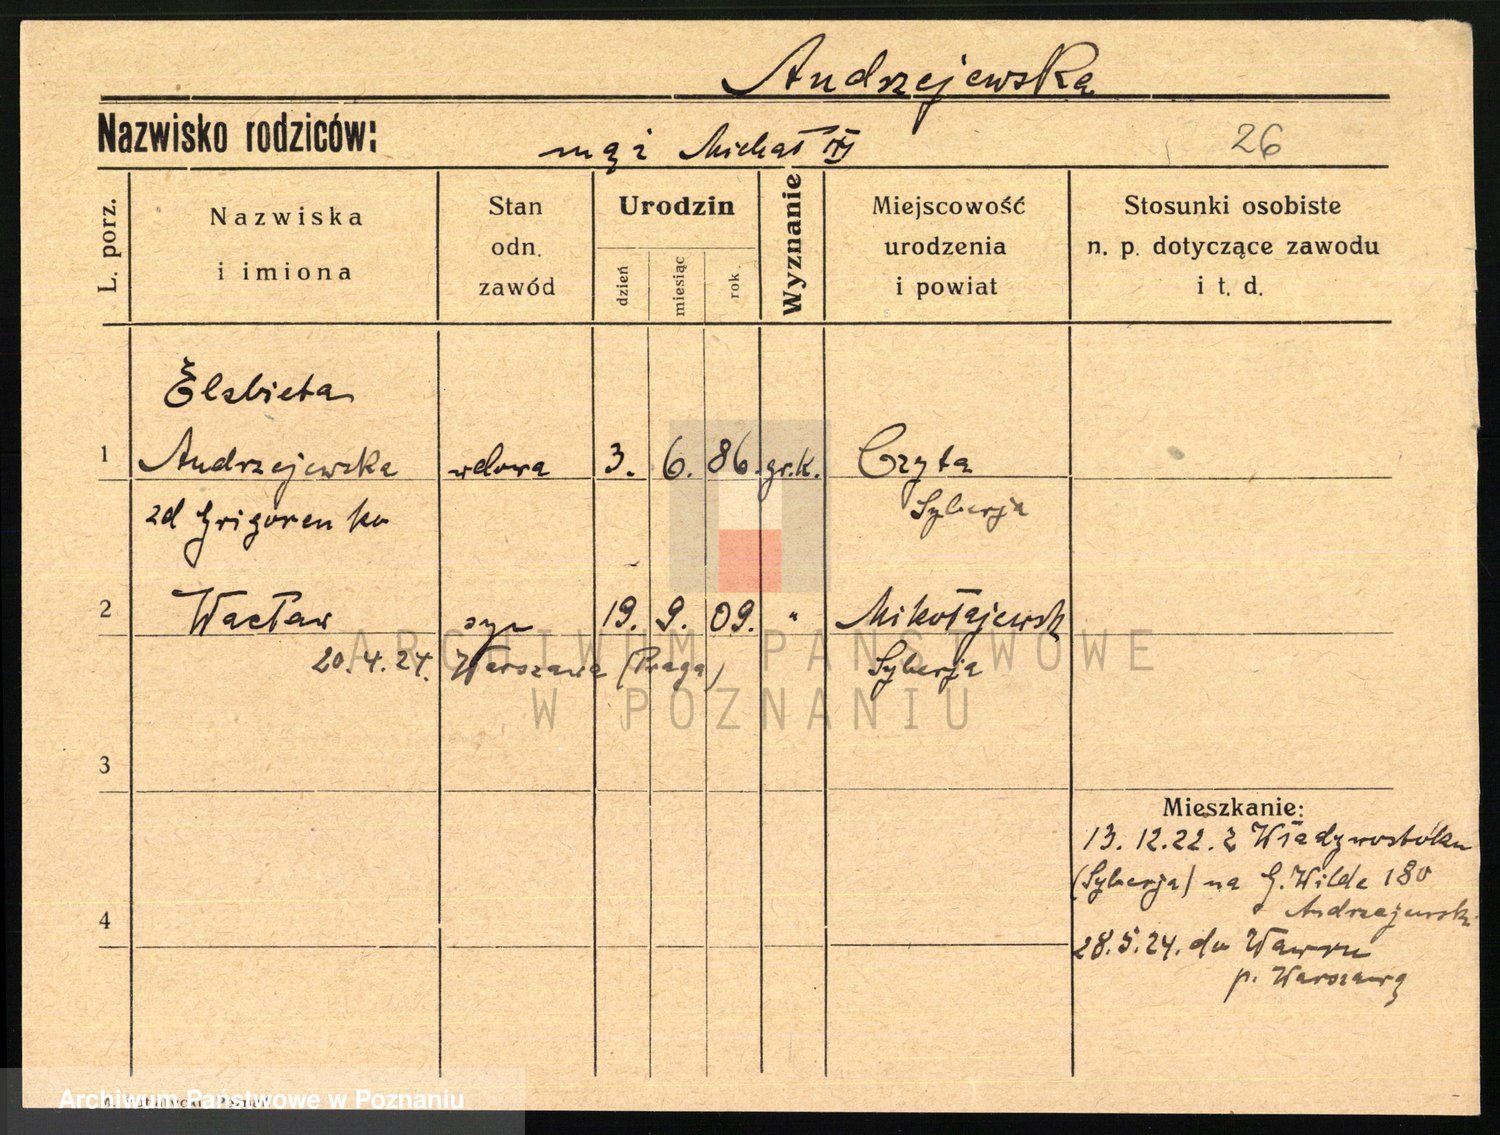 Andrzejewska
Nazwisko rodziców:
mąż Michał
26
L. porz.
Nazwiska
i imiona
Stan
odn.
zawód
Urodzin
dzień
miesiąc
rok
Wyznanie
Miejscowość
urodzenia
i powiat
Stosunki osobiste
n. p. dotyczące zawodu
i t. d.
Elżbieta
1 Andrzejewska wdowa 3. 6. 86. gr.k. Czyta
zd Grigorenko Syberja
2 Wacław syn 19. 9. 09. " Mikołajewsk
20.4.24. Warszawa (Praga) Syberja
ARCHIWUM PAŃSTWOWE
W POZNANIU
3
Mieszkanie:
13.12.22. z Władywostoku
(Syberja) na G. Wilda 180
4
Andrzejewski
28.5.24. do Wawru
p. Warszawą
Archiwum Państwowe w Poznaniu